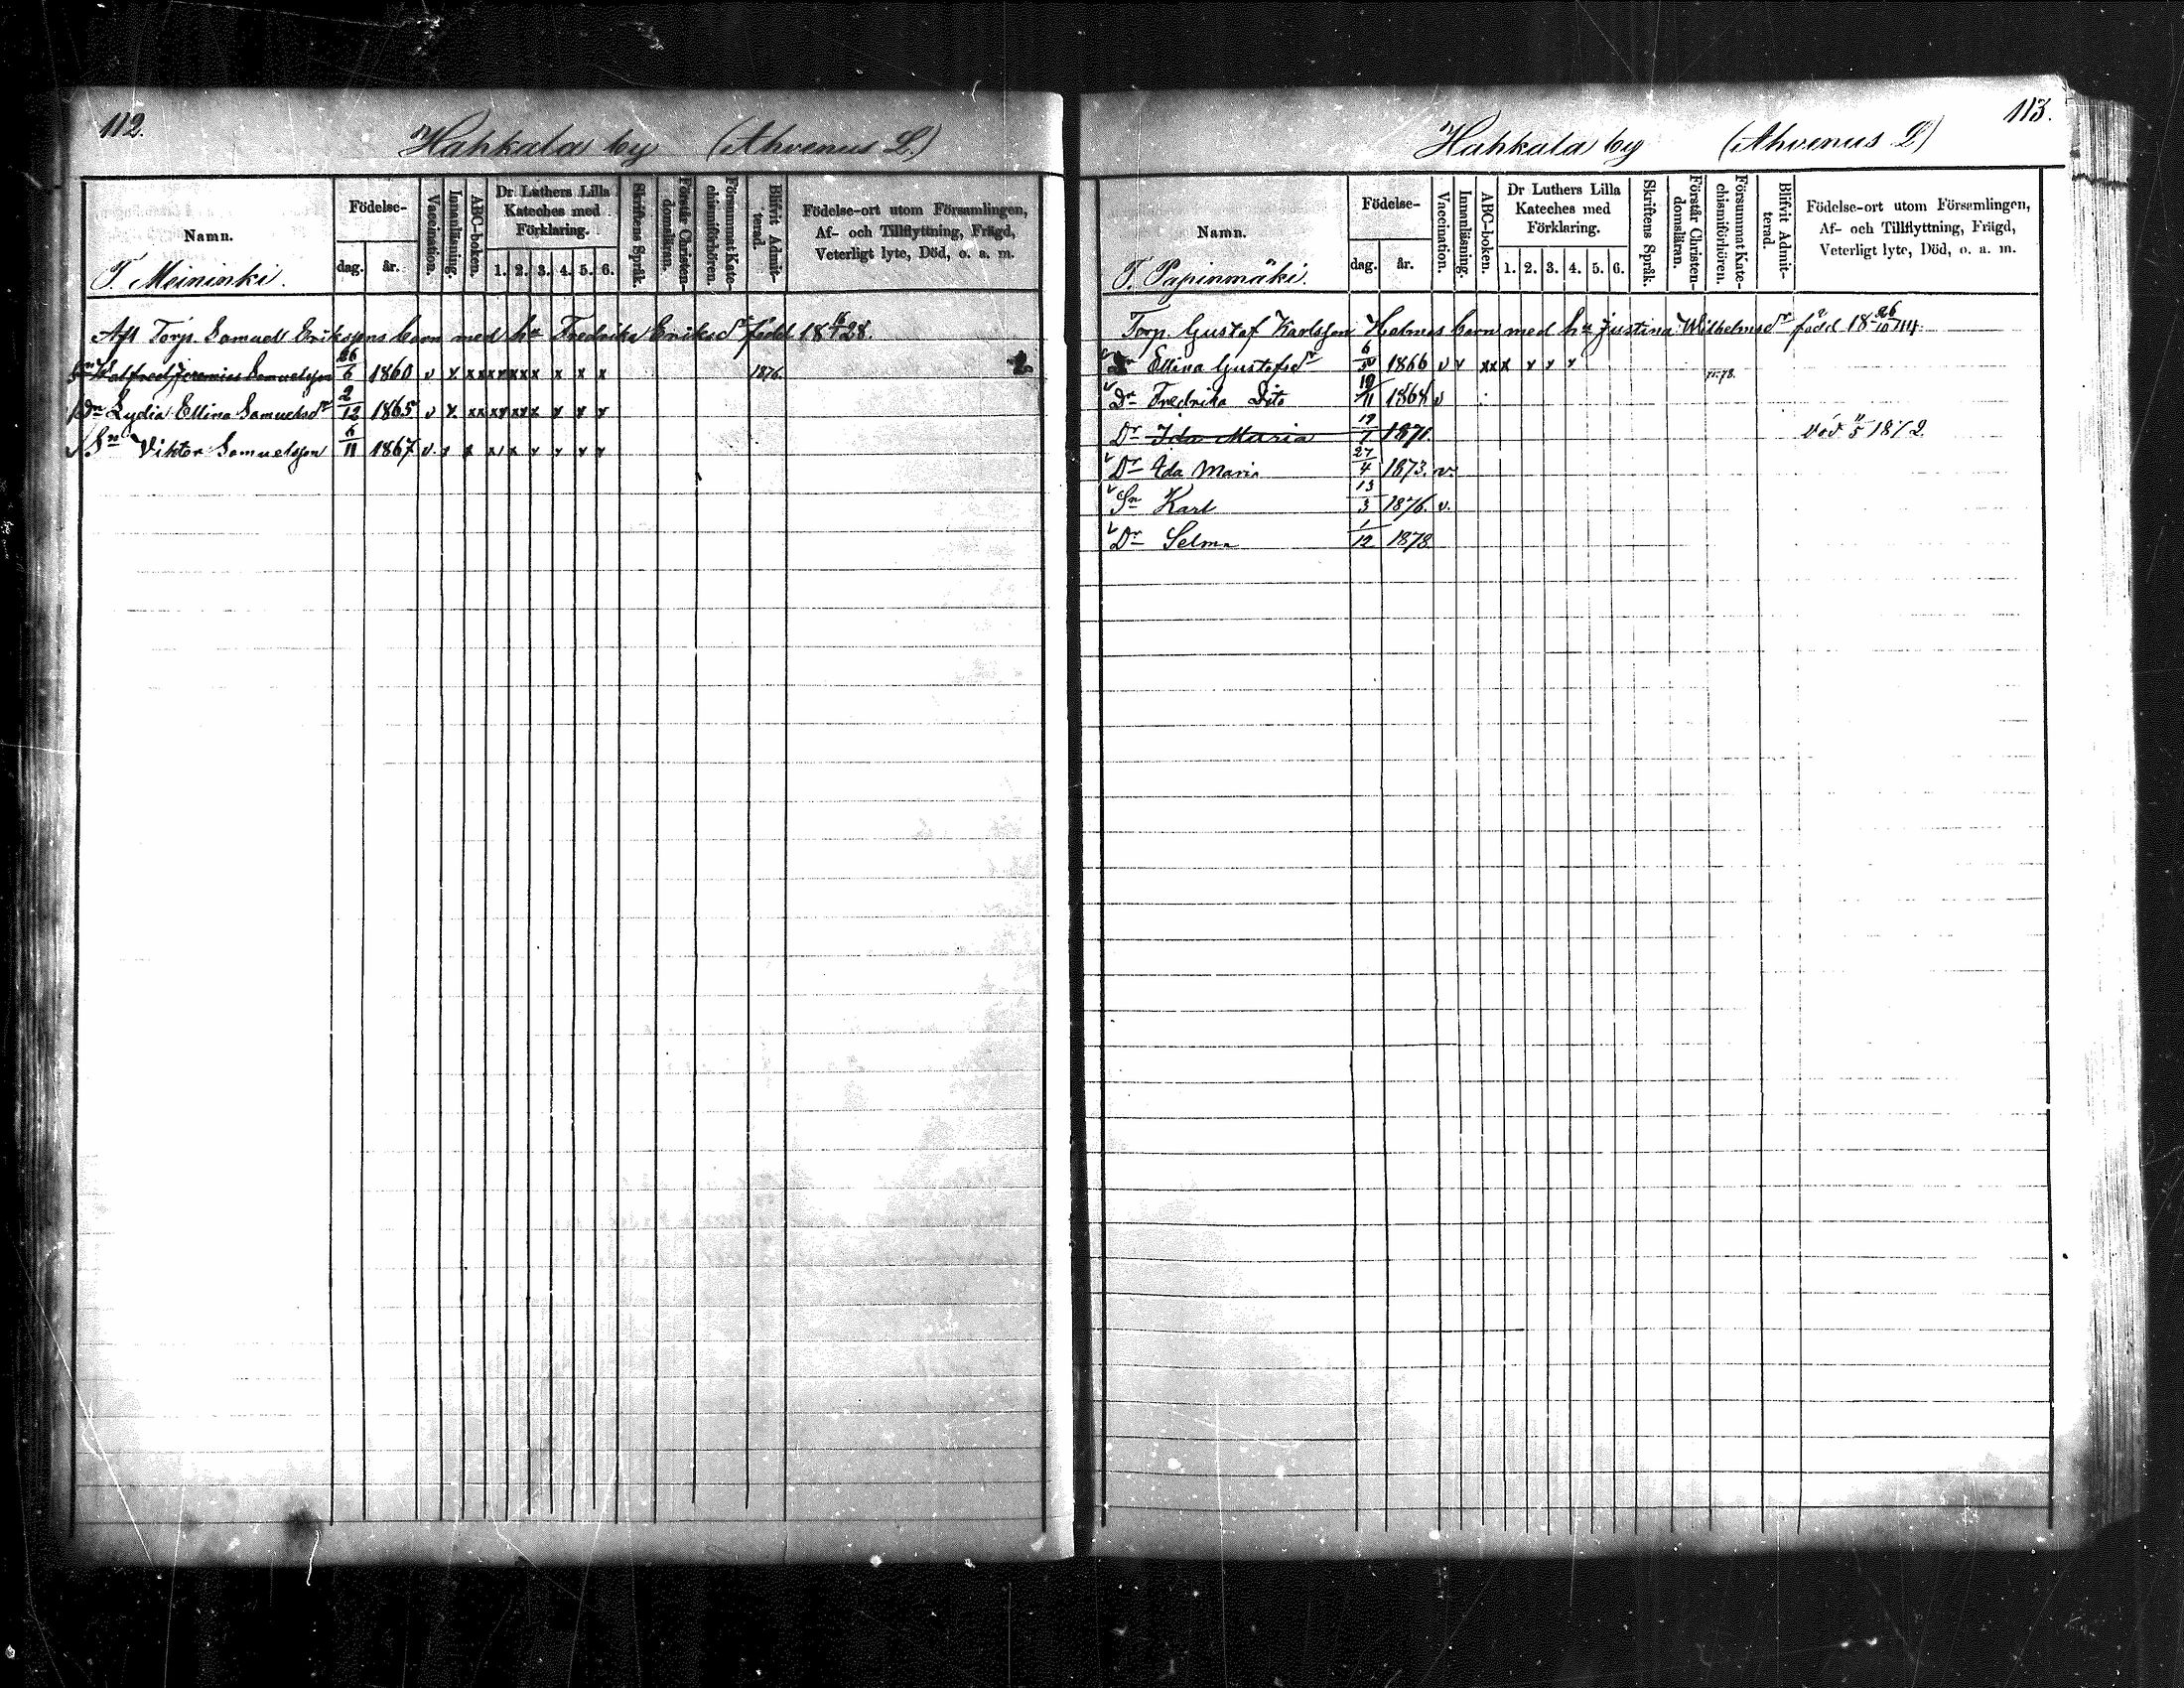 112.
Hahkala by (Ahvenus L.)
Namn.
Födelse-
dag.
år.
Vaccination.
Innanläsning.
ABC-boken.
Dr Luthers Lilla
Kateches med
Förklaring.
1. 2. 3. 4. 5. 6.
Skriftens Språk.
Förstår Christen-
domsläran.
Försummat Kate-
chismiförhören.
Blifvit Admit-
terad.
Födelse-ort utom Församlingen,
Af- och Tillflyttning, Frägd,
Veterligt lyte, Död, o. a. m.
T. Meininki.
Afl Torp. Samuel Erikssons barn med hu Fredrika Eriksdr född 18 28.
Sn Walfred Jeremias Samuelsson 26/6 1860 v x xx xx xxx x x x 1876.
Dr Lydia Ellina Samuelsdr 2/12 1865 v x xx xx xx x x x
Sn Viktor Samuelsson 6/11 1867 v x x x x x x x x
113.
Hahkala by (Ahvenus L)
Namn.
Födelse-
dag.
år.
Vaccination.
Innanläsning.
ABC-boken.
Dr Luthers Lilla
Kateches med
Förklaring.
1. 2. 3. 4. 5. 6.
Skriftens Språk.
Förstår Christen-
domsläran.
Försummat Kate-
chismiförhören.
Blifvit Admit-
terad.
Födelse-ort utom Församlingen,
Af- och Tillflyttning, Frägd,
Veterligt lyte, Död, o. a. m.
T. Papinmäki.
Torp. Gustaf Karlsson Holmes barn med hu Justina Wilhelmsdr född 18 26/10 44.
Ellina Gustafsdr 6/5 1866 v v xxx x x x 77.78.
Dr Fredrika Dito 19/11 1868 v
Dr Ida Maria 19/7 1871. död 11/5 1872
Dr Ida Maria 27/4 1873. v.
Sn Karl 13/3 1876. v.
Dr Selma 1/12 1878